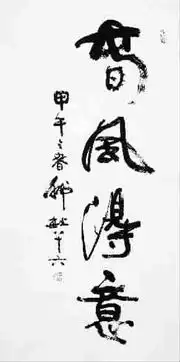 春风得意
甲午之春